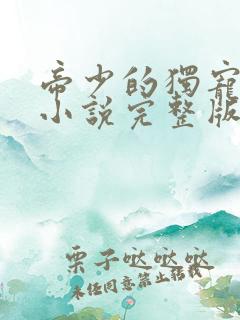 帝少的獨寵
小說完整版
栗子哒哒哒
未经同意禁止转载